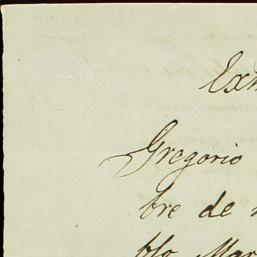 Ex
Gregorio
bre de
blo Mar